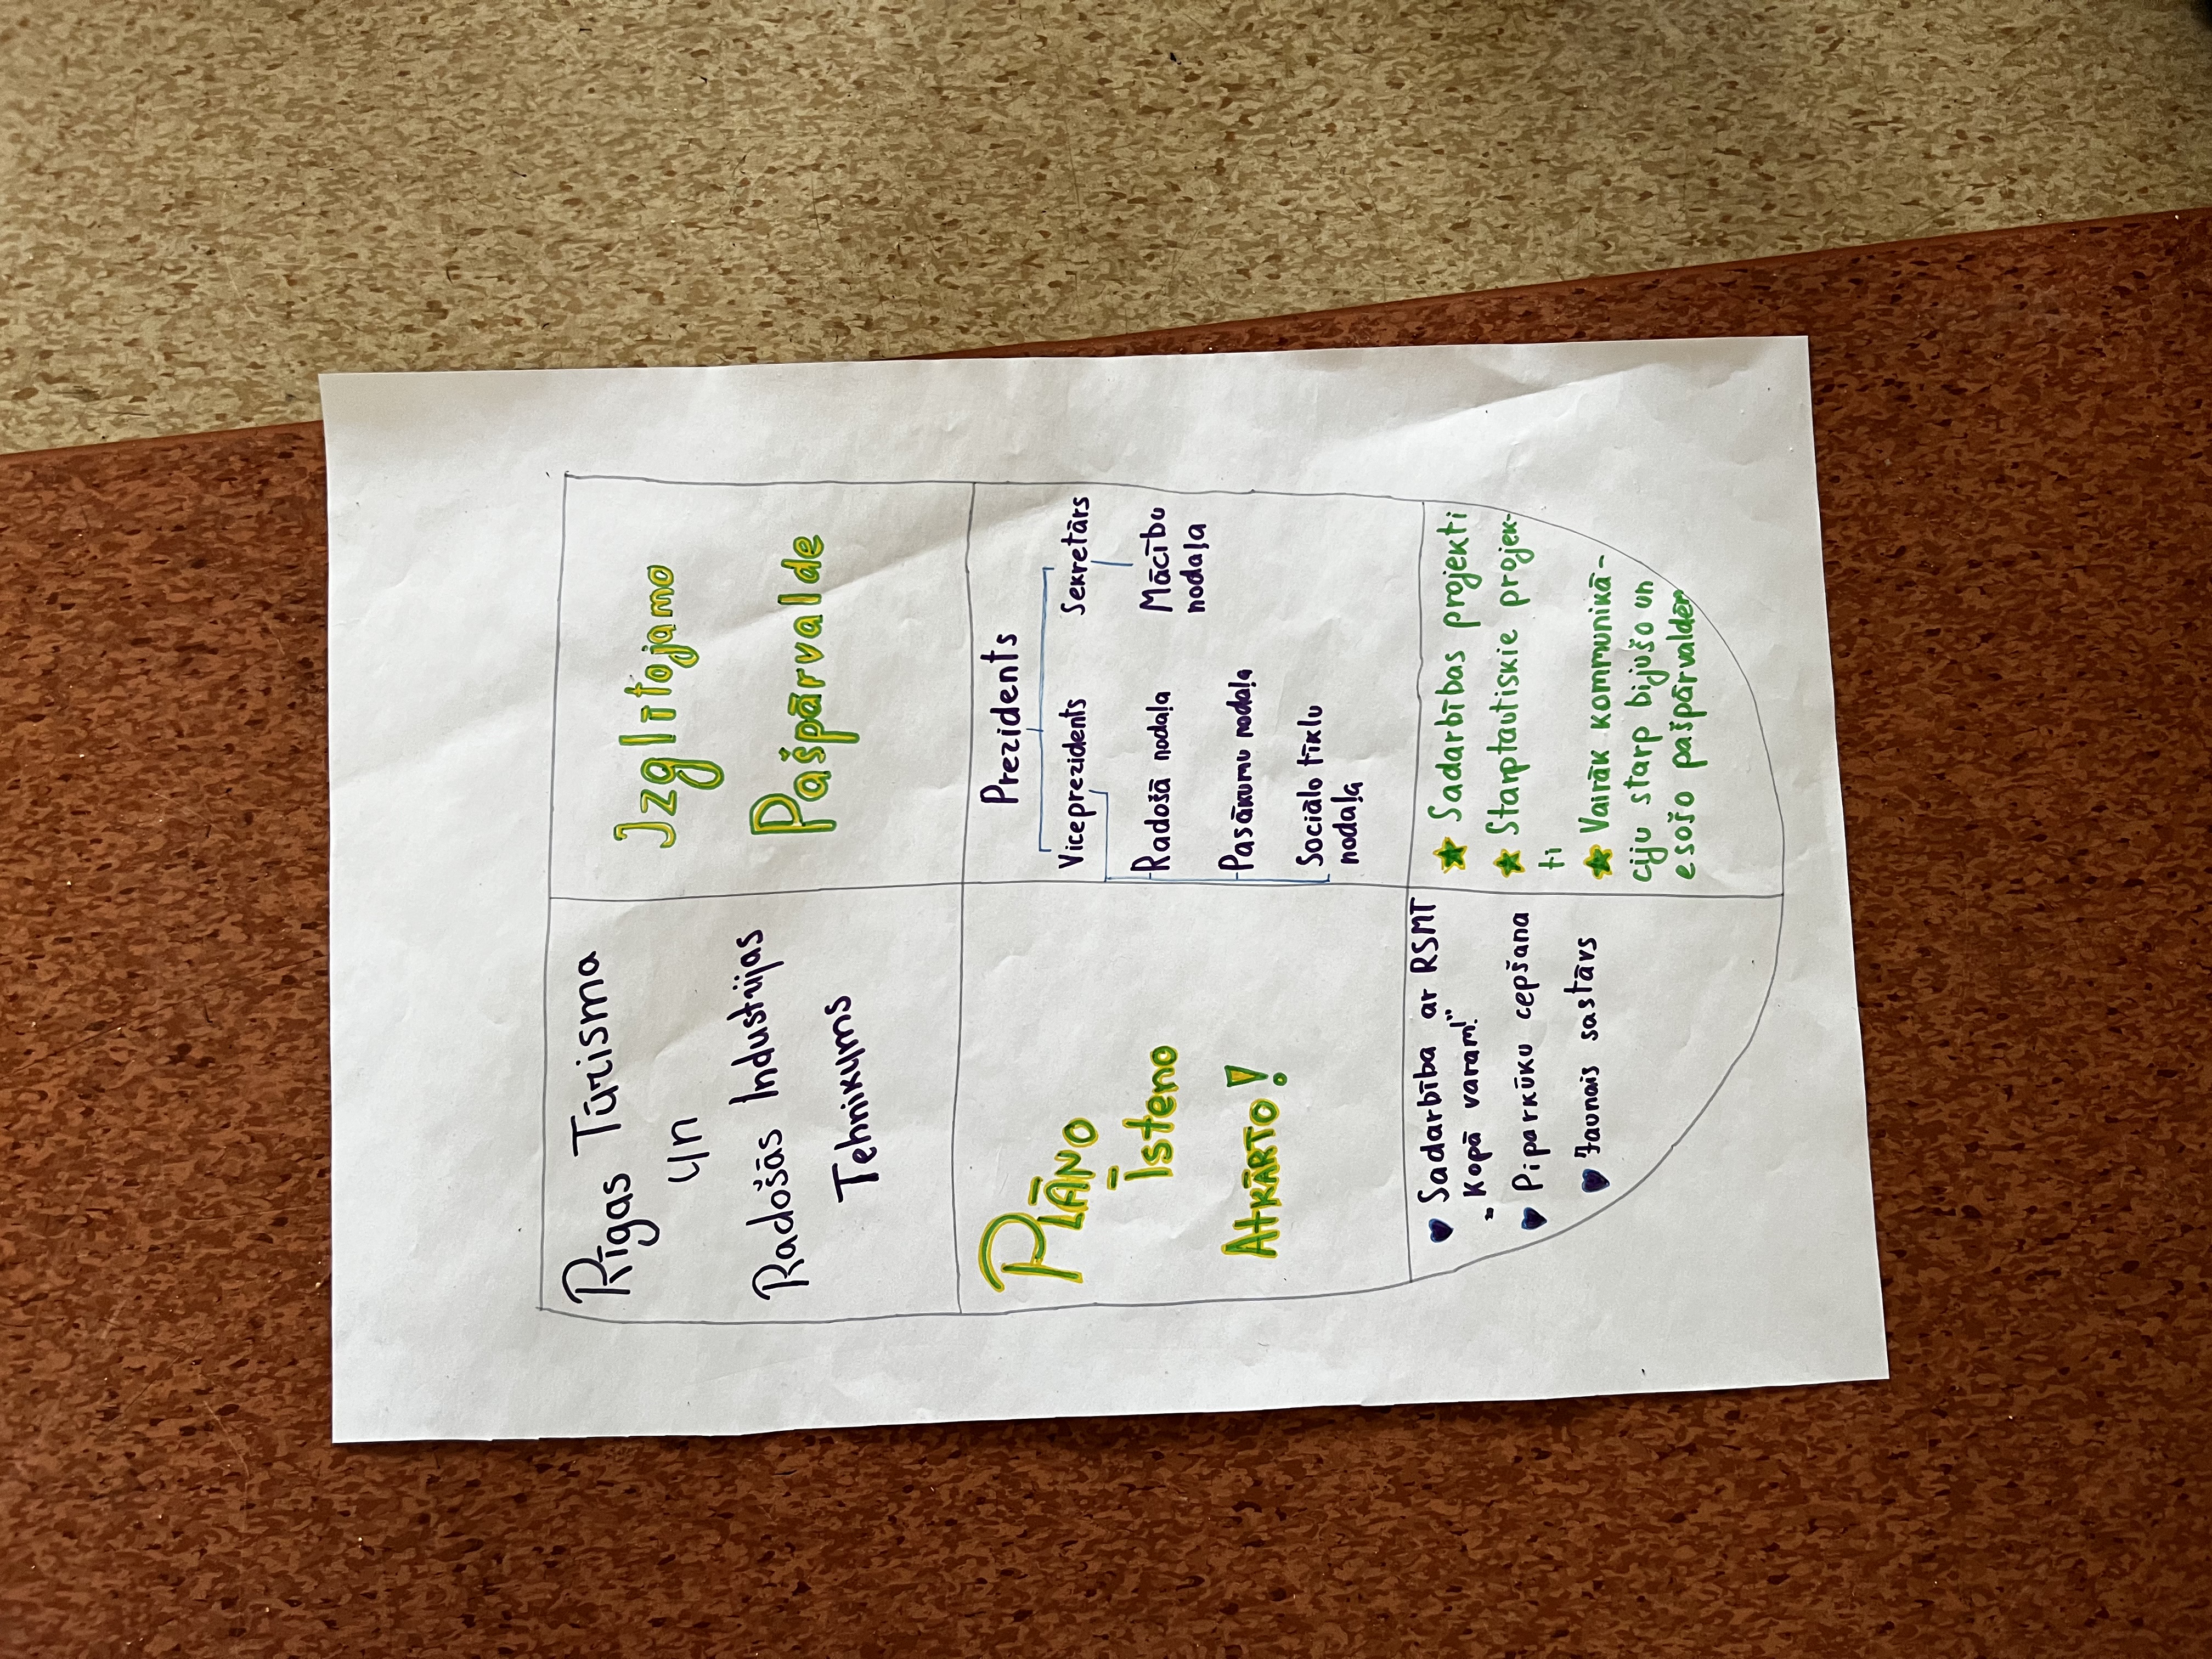 Rīgas Tūrisma
un
Radošās Industrijas
Tehnikums
Izglītojamo
Pašpārvalde
Plāno
Īsteno
Atkārto!
Prezidents
Viceprezidents Sekretārs
Radošā nodaļa
Pasākumu nodaļa
Sociālo tīklu
nodaļa
Mācību
nodaļa
Sadarbība ar RSMT
"Kopā varam!"
Piparkūku cepšana
Jaunais sastāvs
Sadarbības projekti
Starptautiskie projek-
ti
Vairāk kommunikā-
ciju starp bijušo un
esošo pašpārvaldēm